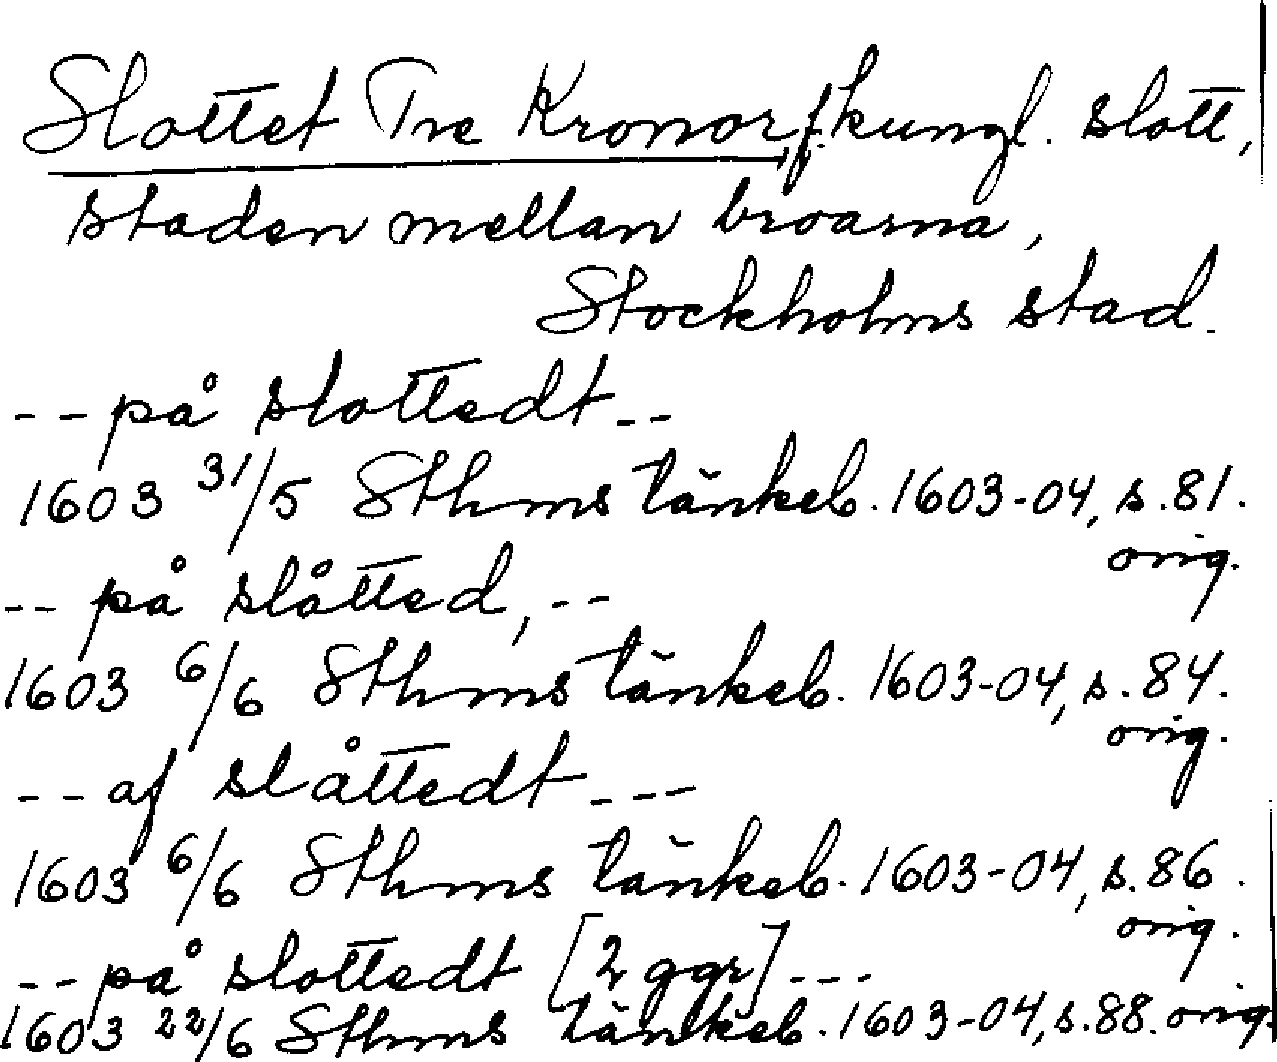 Slottet Tre Kronor, f. kungl. slott,
staden mellan broarna,
Stockholms stad.
-- på slottedt --
1603 31/5 Sthms tänkeb. 1603-04, s. 81.
orig.
-- på slåtted, --
1603 6/6 Sthms tänkeb. 1603-04, s. 84.
orig.
-- af slåttedt ---
1603 6/6 Sthms tänkeb. 1603-04, s. 86.
orig.
-- på slottedt [2 ggr] ---
1603 22/6 Sthms tänkeb. 1603-04, s. 88. orig.